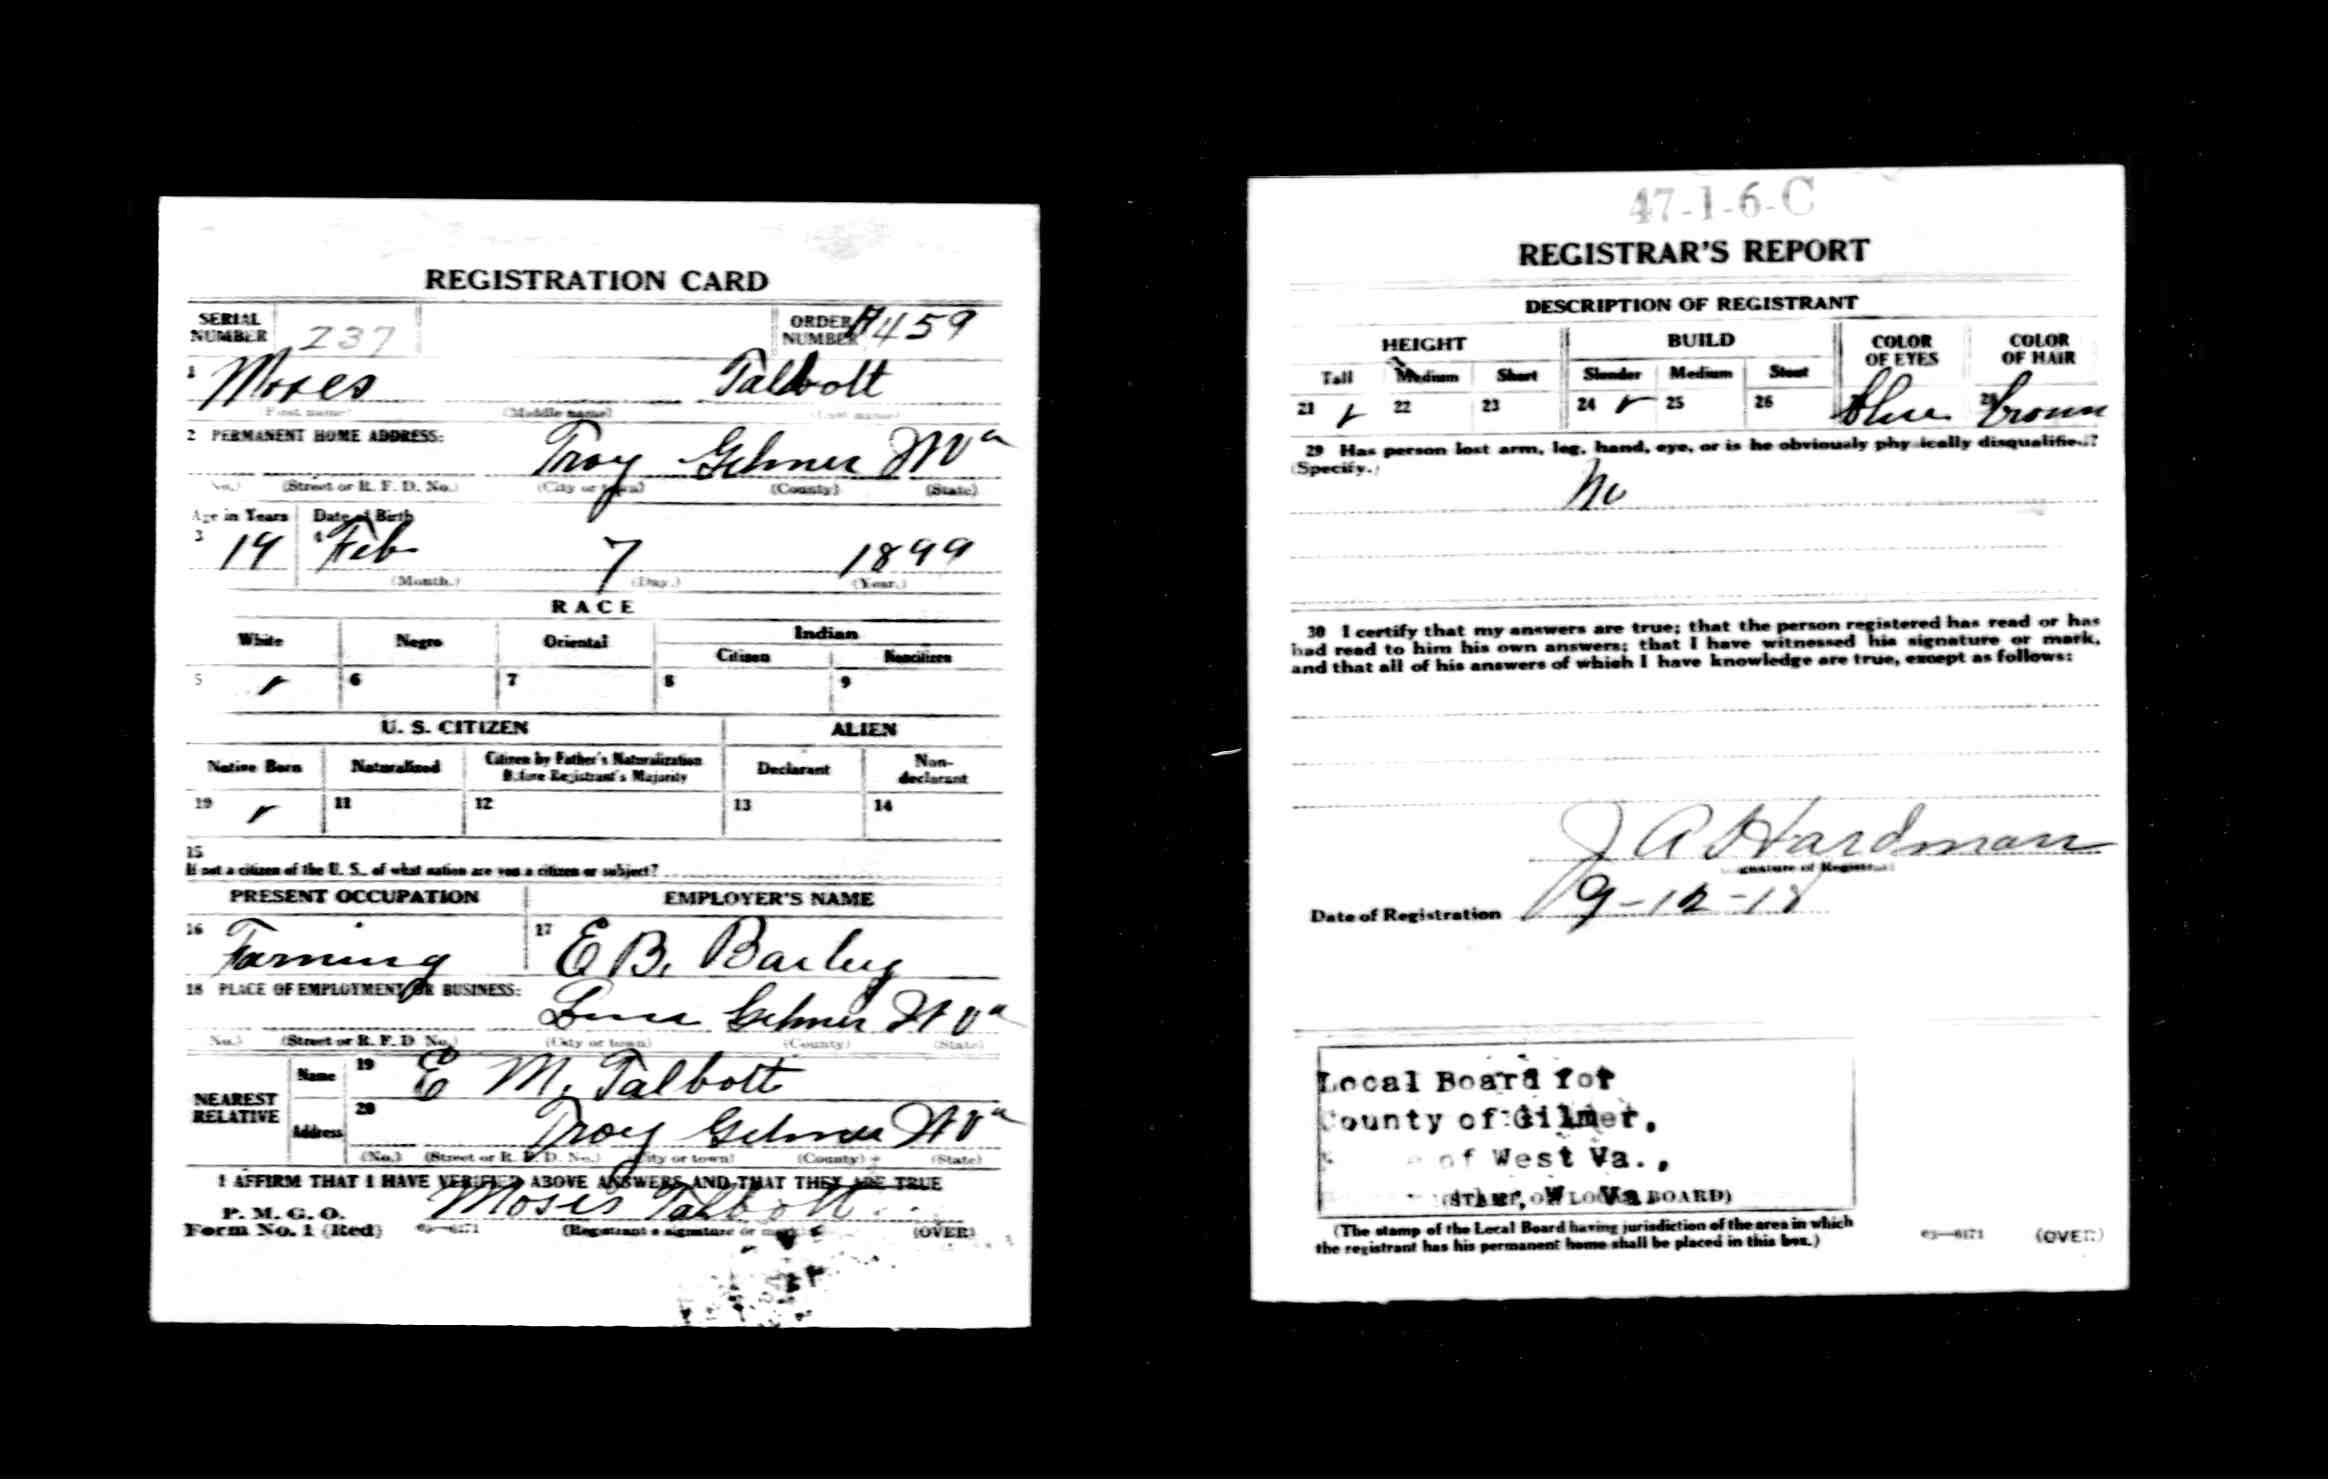 REGISTRATION CARD
SERIAL NUMBER 237
ORDER NUMBER A459
1 Moses Talbott
(First name) (Middle name) (Last name)
2 PERMANENT HOME ADDRESS:
Troy Gilmer W Va
(No.) (Street or R. F. D. No.) (City or town) (County) (State)
Age in Years Date of Birth
3 19 4 Feb 7 1899
(Month.) (Day.) (Year.)
RACE
White Negro Oriental Indian
Citizen Noncitizen
5 ✓ 6 7 8 9
U. S. CITIZEN ALIEN
Native Born Naturalized Citizen by Father's Naturalization Before Registrant's Majority Declarant Non-declarant
10 ✓ 11 12 13 14
15
If not a citizen of the U. S., of what nation are you a citizen or subject?
PRESENT OCCUPATION EMPLOYER'S NAME
16 Farming 17 E B. Bailey
18 PLACE OF EMPLOYMENT OR BUSINESS:
Gilmer W Va
(No.) (Street or R. F. D. No.) (City or town) (County) (State)
NEAREST RELATIVE
Name 19 E M. Talbott
Address 20 Troy Gilmer W Va
(No.) (Street or R. F. D. No.) (City or town) (County) (State)
I AFFIRM THAT I HAVE VERIFIED ABOVE ANSWERS AND THAT THEY ARE TRUE
P. M. G. O.
Form No. 1 (Red) 03—6171 Moses Talbott
(Registrant's signature or mark) (OVER)
47-1-6-C
REGISTRAR'S REPORT
DESCRIPTION OF REGISTRANT
HEIGHT BUILD COLOR OF EYES COLOR OF HAIR
Tall Medium Short Slender Medium Stout
21 ✓ 22 23 24 ✓ 25 26 27 Blue 28 brown
29 Has person lost arm, leg, hand, eye, or is he obviously physically disqualified?
(Specify.) No
30 I certify that my answers are true; that the person registered has read or has
had read to him his own answers; that I have witnessed his signature or mark,
and that all of his answers of which I have knowledge are true, except as follows:
J A Hardman
(Signature of Registrar)
Date of Registration 9-12-18
Local Board for
County of Gilmer,
of West Va.,
(STAMP OF LOCAL BOARD)
(The stamp of the Local Board having jurisdiction of the area in which
the registrant has his permanent home shall be placed in this box.)
03—6171 (OVER)